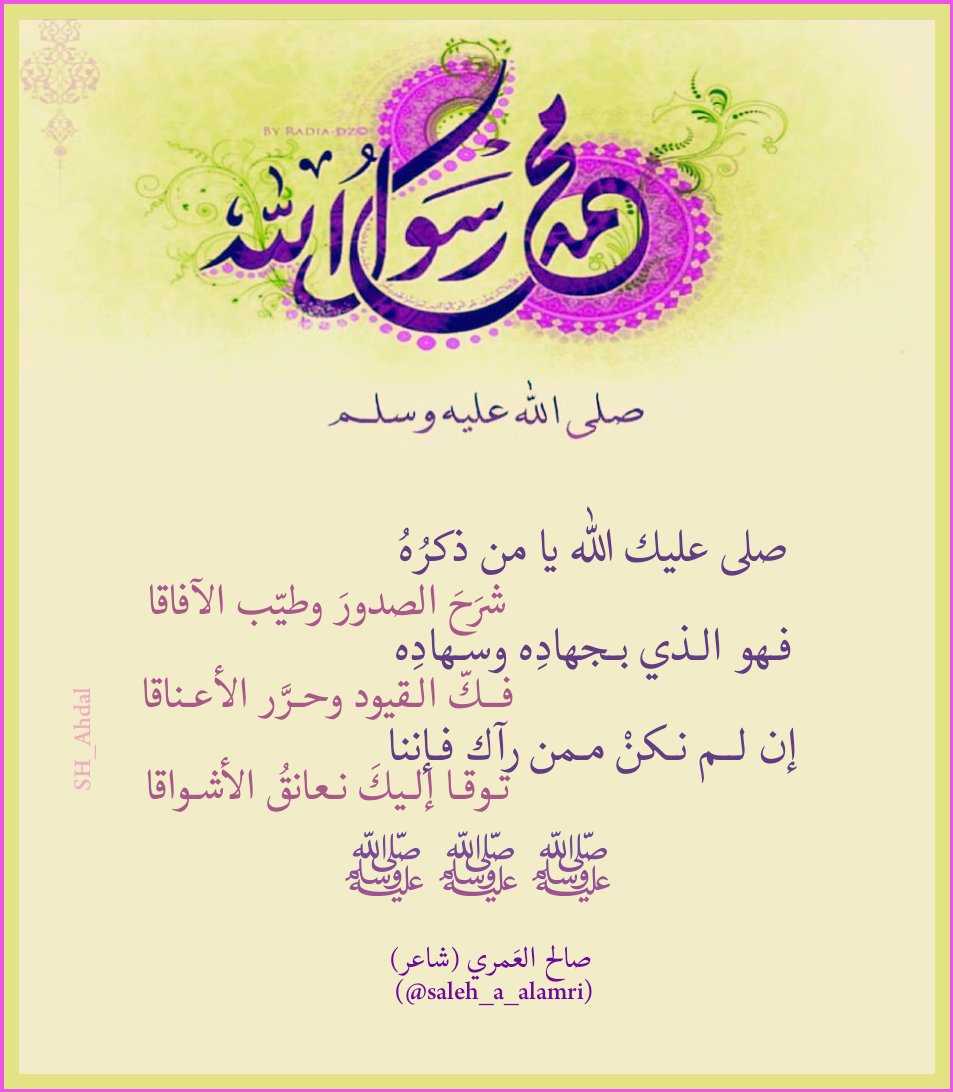 BY RADIA-DZ©
محمد رسول الله
صلى الله عليه وسلم
صلى عليك الله يا من ذكرُهُ
شرَحَ الصدورَ وطيّب الآفاقا
فهو الذي بجهادِه وسهادِه
فكّ القيود وحرَّر الأعناقا
إن لم نكنْ ممن رآك فإننا
توقا إليكَ نعانقُ الأشواقا
ﷺ ﷺ ﷺ
صالح العَمري (شاعر)
(@saleh_a_alamri)
SH_Ahdal